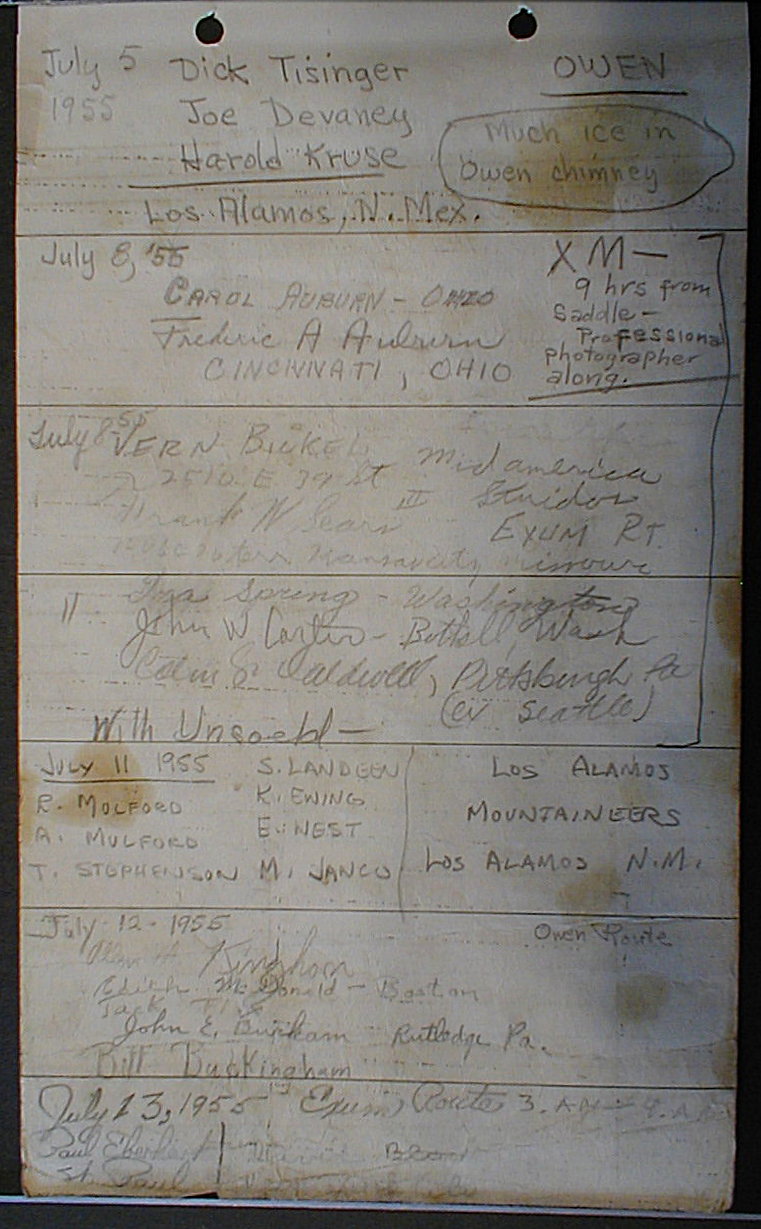 July 5 Dick Tisinger OWEN
1955 Joe Devaney Much ice in
Harold Kruse Owen chimney
Los Alamos, N. Mex.
July 8, '55 XM—
CAROL AUBURN - OHIO 9 hrs from
Frederic A Auburn Saddle—
CINCINNATI, OHIO Professional
photographer
along.
July 8-55 VERN BICKEL Mid america
2510 E 39 St Studios
Frank W Sears III EXUM RT.
Kansas city
" Ira Spring - Washington
John W. Carter - Bothell, Wash
Colin S. Caldwell, Pittsburgh Pa
(ex Seattle)
With Unsoeld—
JULY 11 1955 S. LANDEEN LOS ALAMOS
R. MULFORD K. EWING MOUNTAINEERS
A. MULFORD E. WEST
T. STEPHENSON M. JANCO LOS ALAMOS N.M.
July 12 - 1955 Owen Route
Kinghorn
Edith McDonald - Boston
Jack
John E. Burkam Rutledge Pa.
Bill Buckingham
July 13, 1955 Exum Route 3. AM
Paul
St. Paul